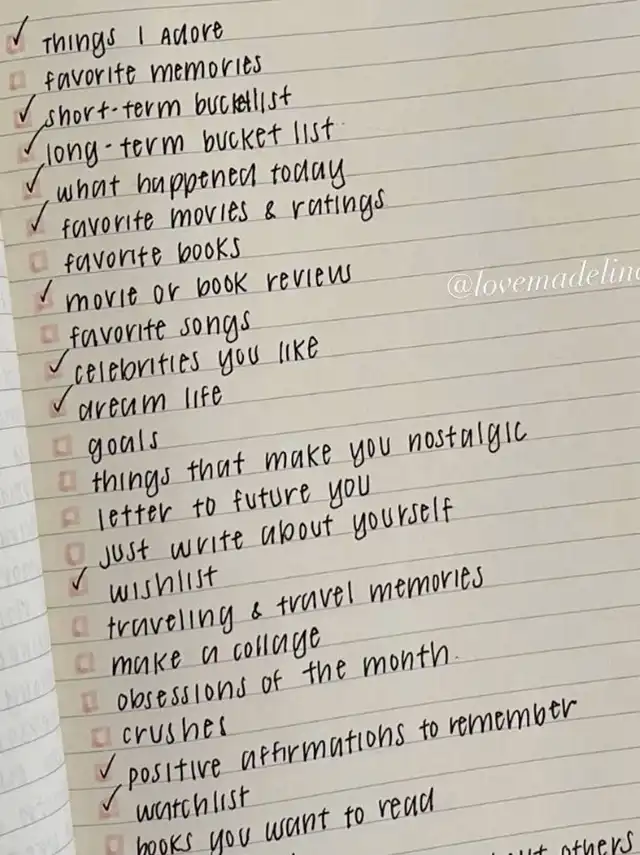 things I adore
favorite memories
short-term bucketlist
long-term bucket list
what happened today
favorite movies & ratings
favorite books
movie or book review
@lovemadelin
favorite songs
celebrities you like
dream life
goals
things that make you nostalgic
letter to future you
just write about yourself
wishlist
traveling & travel memories
make a collage
obsessions of the month.
crushes
positive affirmations to remember
watchlist
books you want to read
others